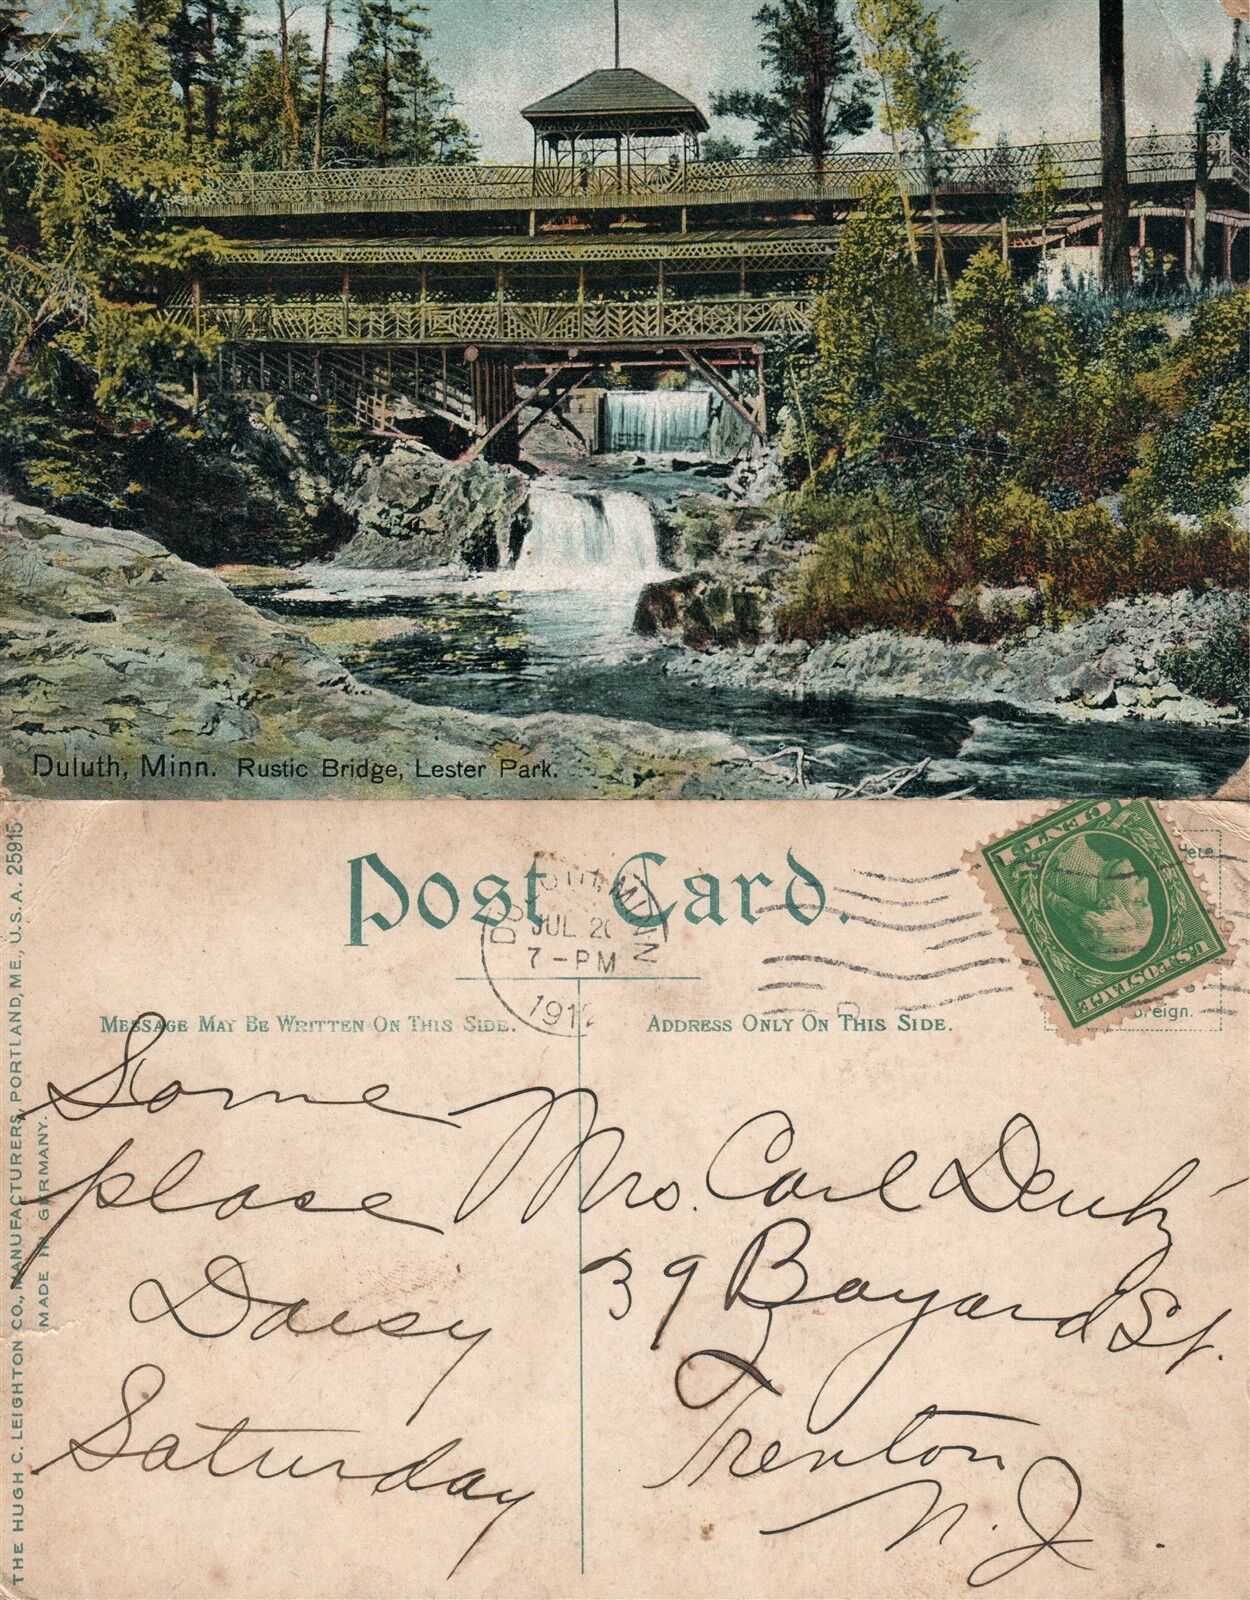 Duluth, Minn. Rustic Bridge, Lester Park.
THE HUGH C. LEIGHTON CO., MANUFACTURERS, PORTLAND, ME., U.S.A. 25915
MADE IN GERMANY.
Post Card.
DULUTH, MINN
JUL 20
7-PM
1912
CENTS
U.S. POSTAGE
oreign.
MESSAGE MAY BE WRITTEN ON THIS SIDE.
ADDRESS ONLY ON THIS SIDE.
Some
place
Daisy
Saturday
Mrs. Carl
39 Bayard St.
Trenton
N.J.